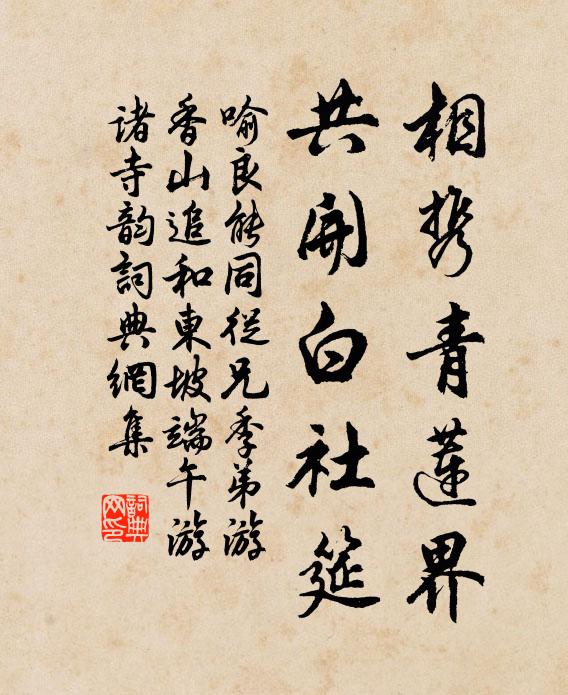 相携青蓮界
共開白社筵
喻良能同從兄季弟游
香山追和東坡端午游
諸寺韵詞典網集
詞典网印